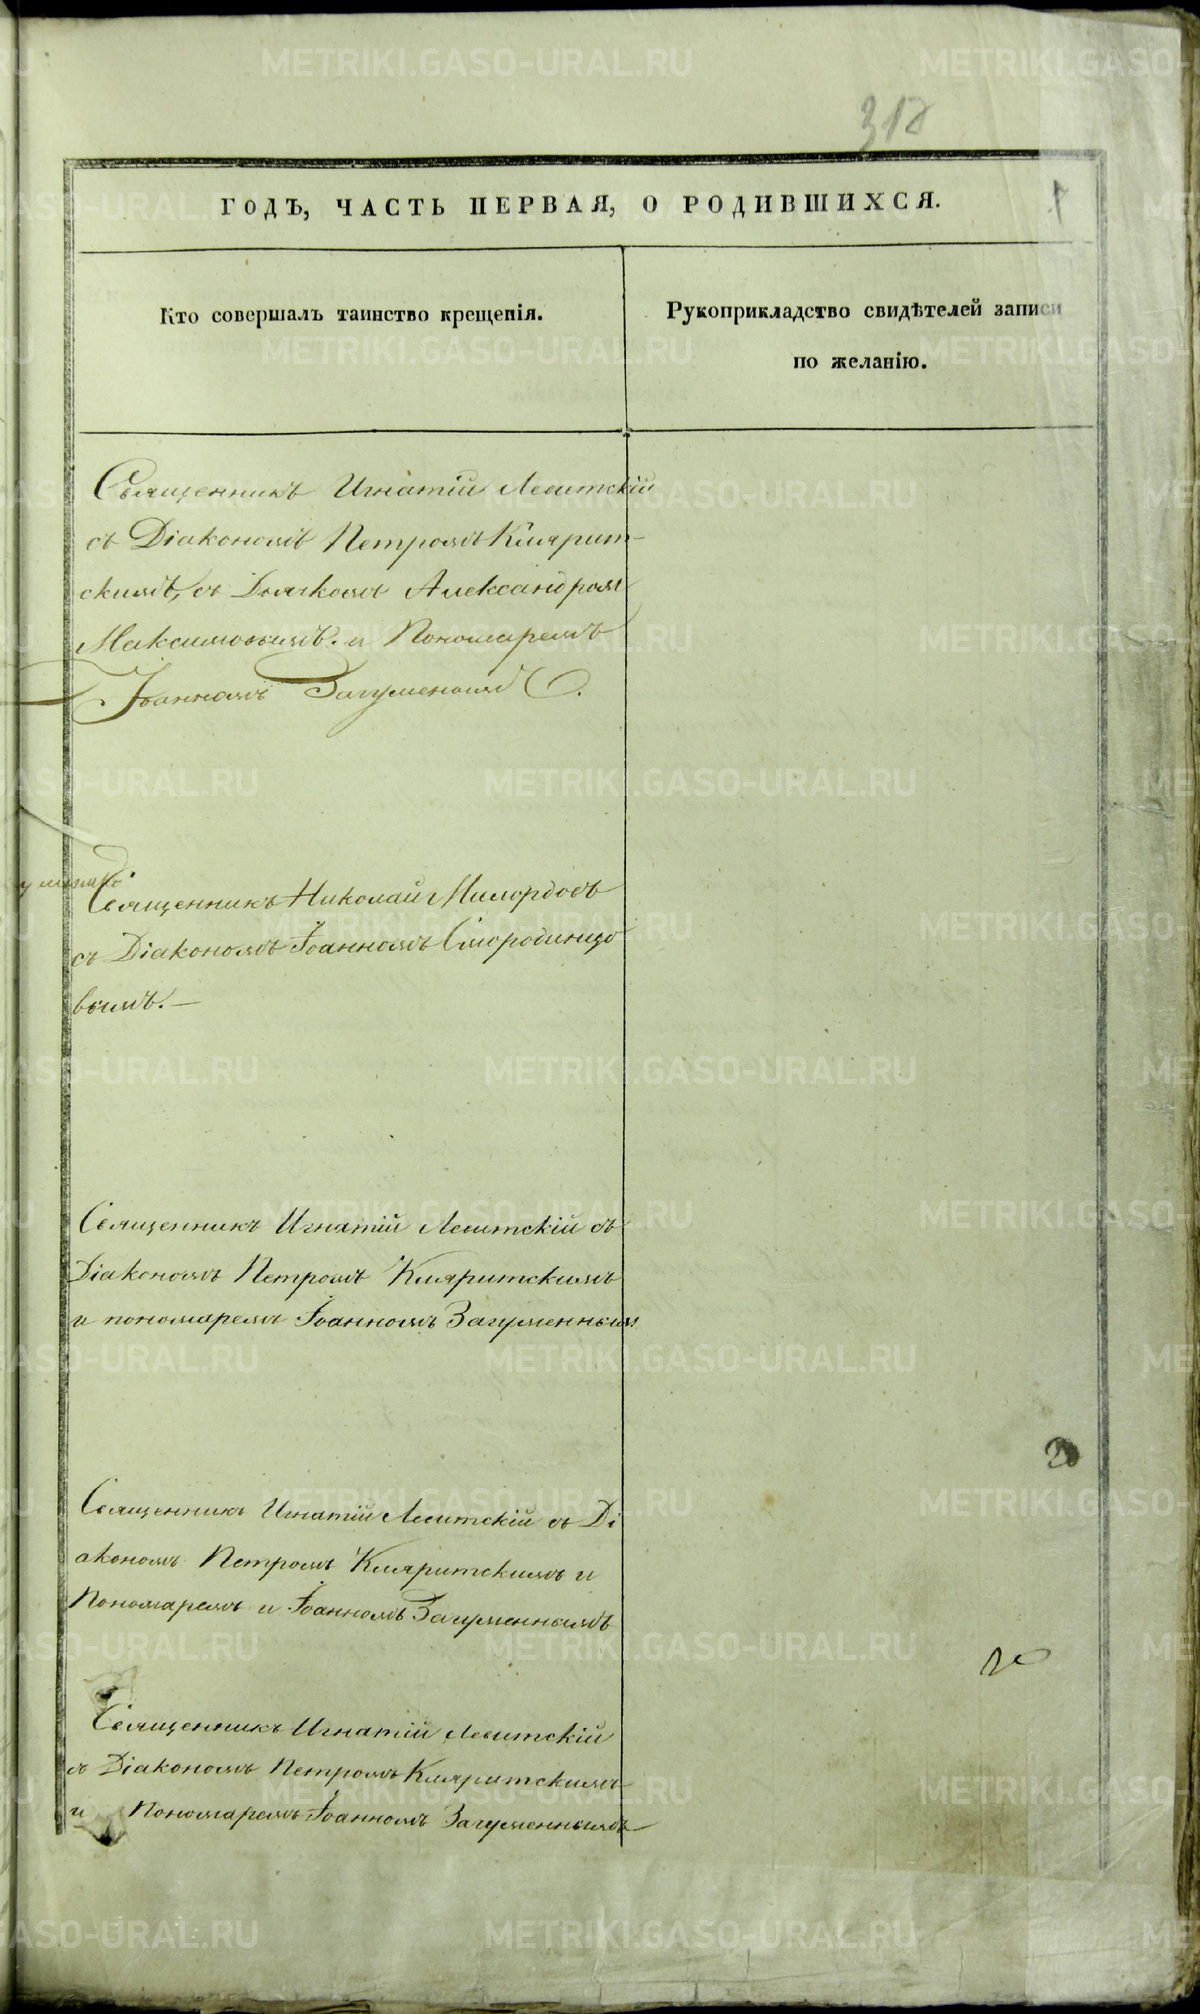 318
ГОДЪ, ЧАСТЬ ПЕРВАЯ, О РОДИВШИХСЯ.
Кто совершалъ таинство крещенія.
Рукоприкладство свидѣтелей записи
по желанію.
Священникъ Игнатій Левитскій
съ Діакономъ Петромъ Клярит-
скимъ, съ Дьячкомъ Александромъ
Максимовымъ. и Пономаремъ
Іоанномъ Загуменнымъ.
Священникъ Николай Милордовъ
съ Діакономъ Іоанномъ Смородинцо
вымъ. —
Священникъ Игнатій Левитскій съ
Діакономъ Петромъ Кляритскимъ
и пономаремъ Іоанномъ Загуменнымъ
Священникъ Игнатій Левитскій съ Ді
акономъ Петромъ Кляритскимъ и
Пономаремъ и Іоанномъ Загуменнымъ
Священникъ Игнатій Левитскій
съ Діакономъ Петромъ Кляритскимъ
и Пономаремъ Іоанномъ Загуменнымъ
METRIKI.GASO-URAL.RU